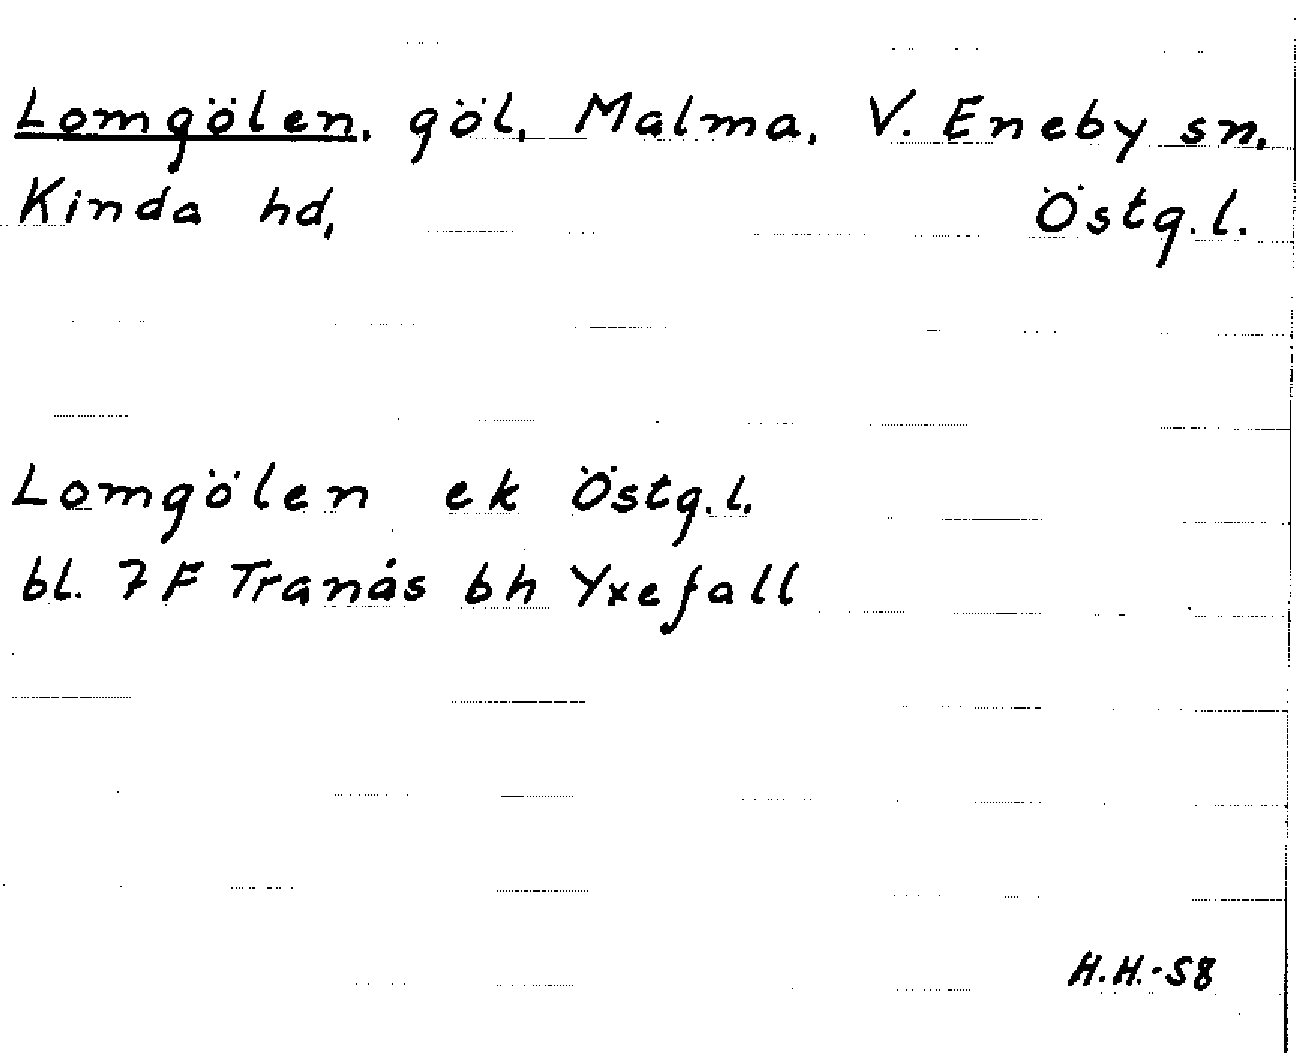 Lomgölen. göl, Malma, V. Eneby sn.
Kinda hd, Östg.l.
Lomgölen ek Östg.l.
bl. 7F Tranås bh Yxefall
H.H.-58